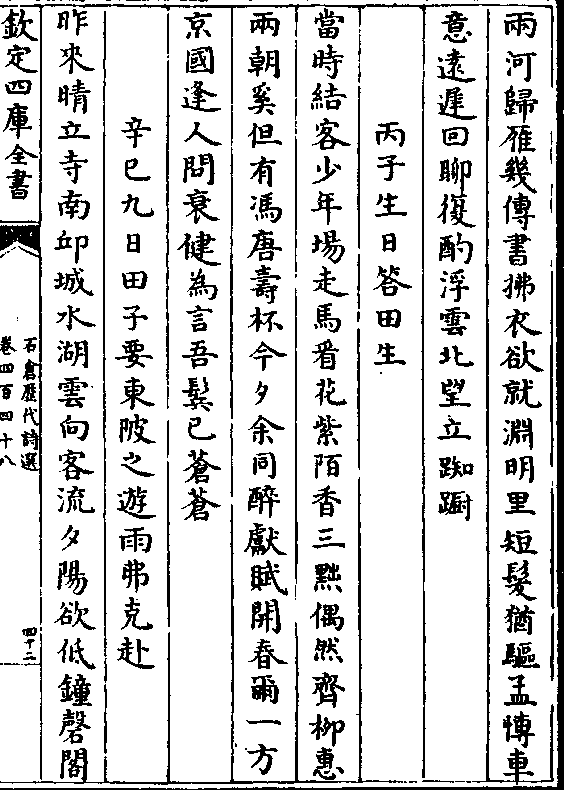 兩河歸雁幾傳書拂衣欲就淵明里短髮猶驅孟慱車
意遠遲回聊復酌浮雲北望立踟蹰
丙子生日答田生
當時結客少年場走馬㸔花紫陌香三黜偶然齊柳惠
兩朝奚但有馮唐壽杯今夕余同醉獻賦開春爾一方
京國逢人問衰健為言吾鬂已蒼蒼
辛巳九日田子要東陂之遊雨弗克赴
昨來晴立寺南邱城水湖雲向客流夕陽欲低鐘磬閣
欽定四庫全書
石倉歷代詩選
卷四百四十八
四十二